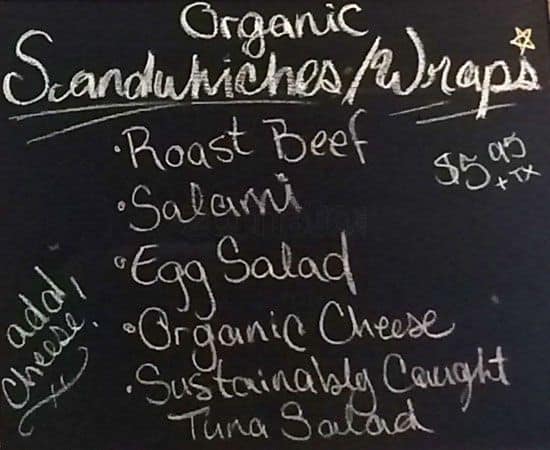 Organic
Scandwhiches/Wraps
·Roast Beef
$5.95
+TX
·Salami
·Egg Salad
add
Cheese!
·Organic Cheese
·Sustainably Caught
Tuna Salad